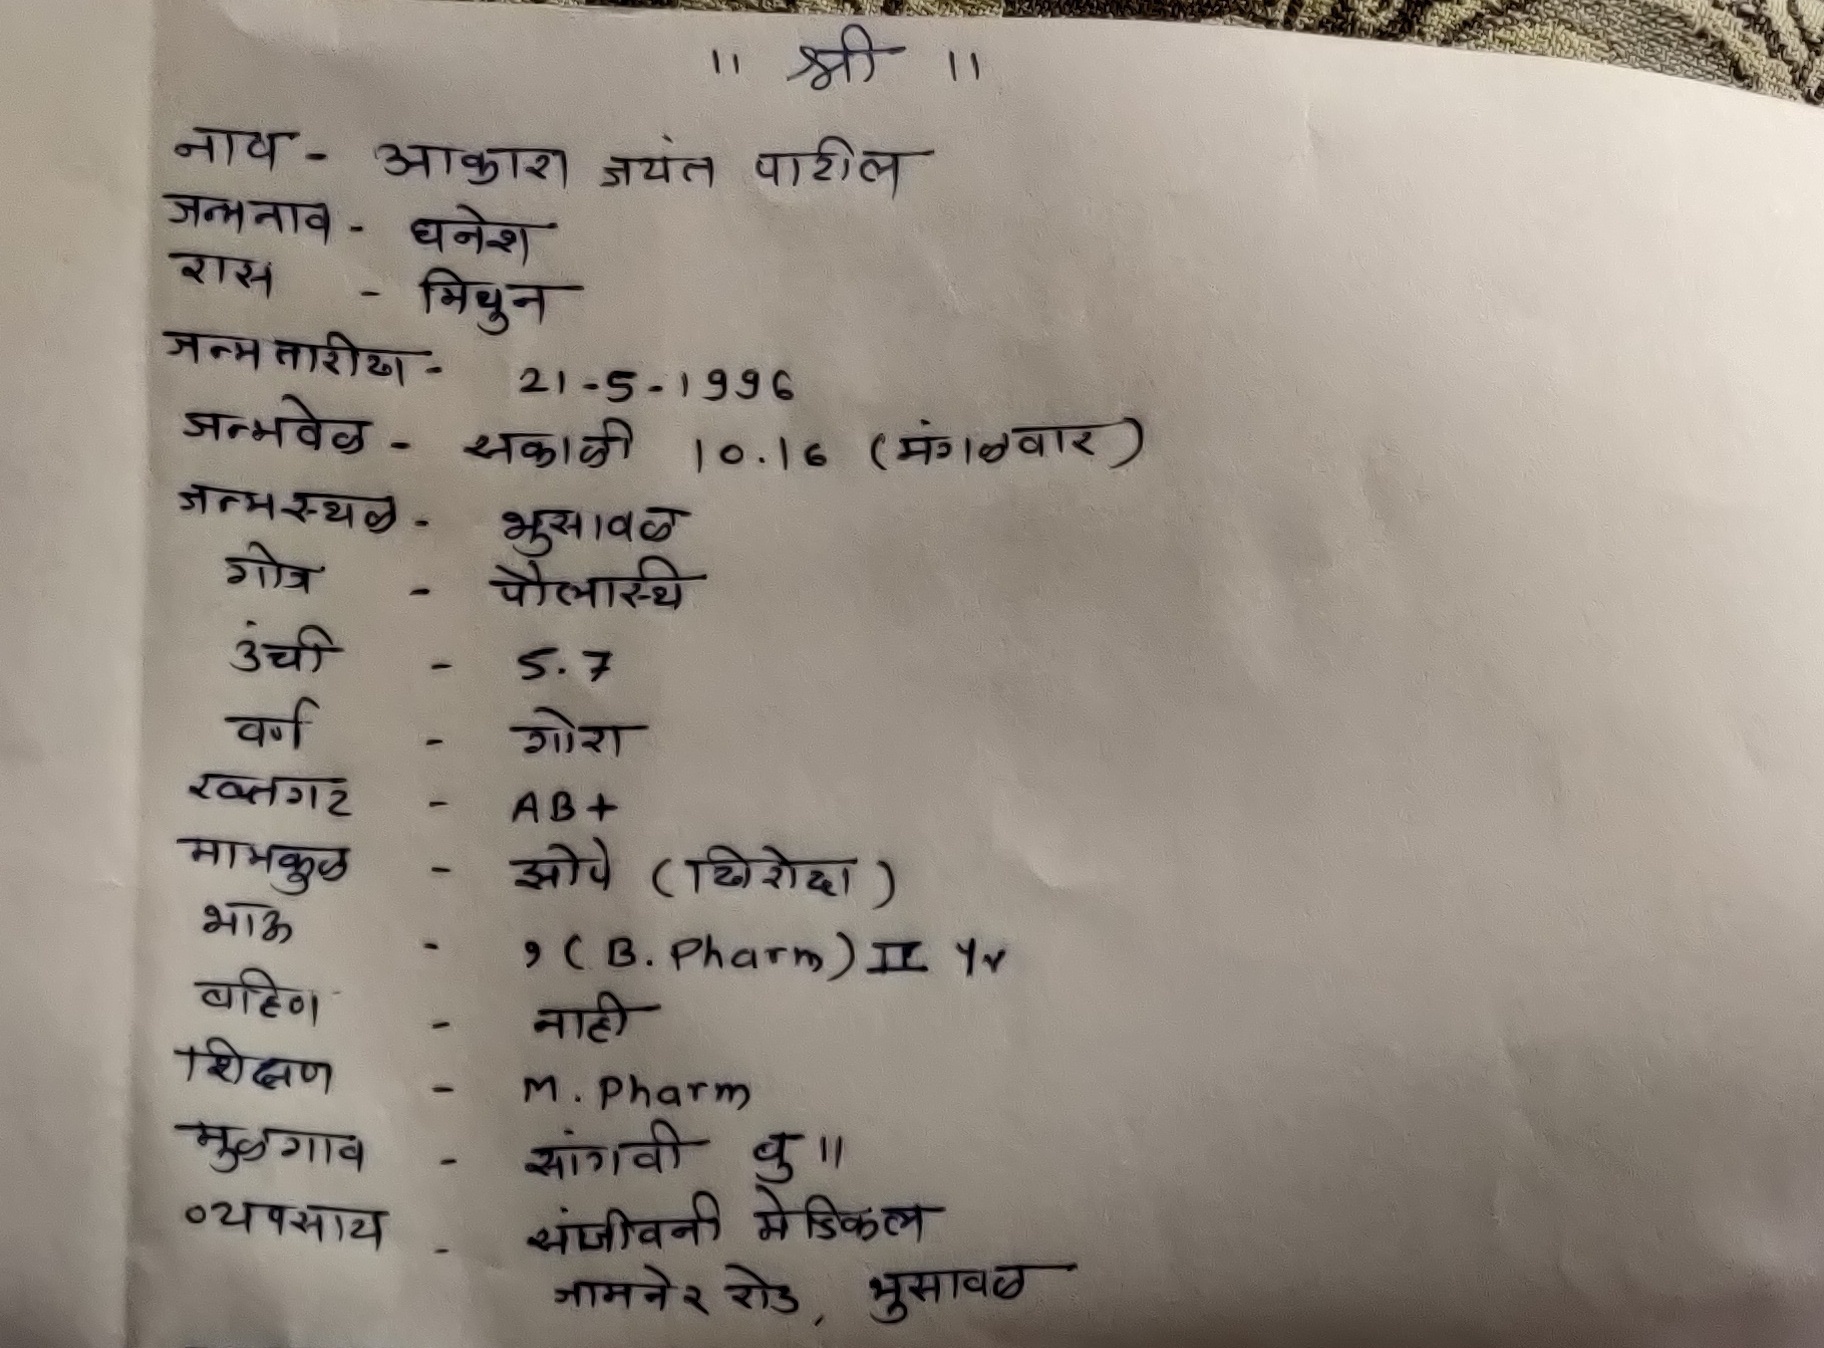 ॥ श्री ॥
नाव - आकाश जयंत पाटील
जन्मनाव - धनेश
रास - मिथुन
जन्म तारीख - 21-5-1996
जन्मवेळ - सकाळी 10.16 (मंगळवार)
जन्मस्थळ - भुसावळ
गोत्र - पौलास्थि
उंची - 5.7
वर्ण - गोरा
रक्तगट - AB+
मामकुळ - झोपे (खिरोदा)
भाऊ - १ (B. Pharm) II Yr
बहिण - नाही
शिक्षण - M. Pharm
मुळगाव - सांगवी बु॥
व्यवसाय - संजीवनी मेडिकल
जामनेर रोड, भुसावळ